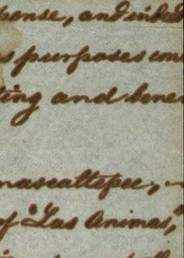 pense, and indeb
s purposes con
ting and bene
mascaltepec,
of "Las Animas,"